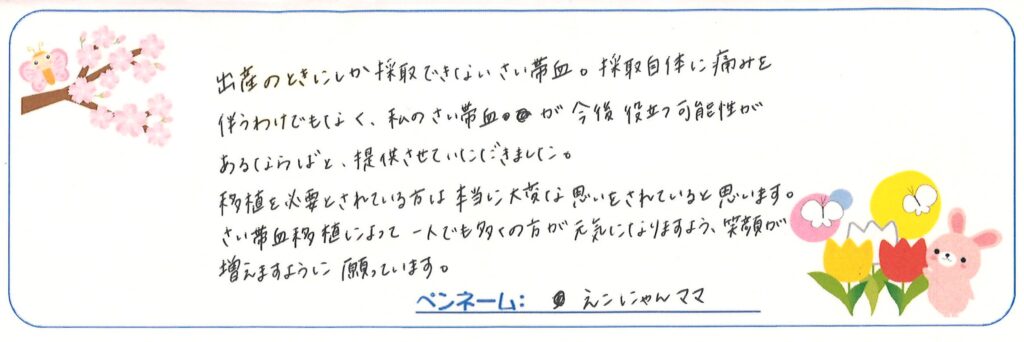 出産のときにしか採取できないさい帯血。採取自体に痛みを
伴うわけでもなく、私のさい帯血が今後役立つ可能性が
あるならばと、提供させていただきました。
移植を必要とされている方は本当に大変な思いをされていると思います。
さい帯血移植によって一人でも多くの方が元気になりますよう、笑顔が
増えますように願っています。
ペンネーム: えこにゃんママ